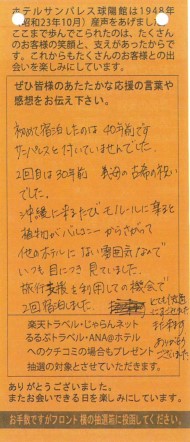 ホテルサンパレス球陽館は1948年
(昭和23年10月)産声をあげました。
ここまで歩んでこられたのは、たくさ
んのお客様の笑顔と、支えがあったからで
す。これからもたくさんのお客様との出
会いを楽しみにしています。
ぜひ皆様のあたたかな応援の言葉や
感想をお伝え下さい。
初めて宿泊したのは40年前です
サンパレスを付いていませんでした。
2回目は30年前 義母の古希の祝い
でした。
沖縄に来るたびモルールに乗ると
植物がバルコニーからさがって
他のホテルにない雰囲気なので
いつも目につき見ていました。
旅行支援を利用しての機会で
2回宿泊しました。
とても快適
また来ます
ありがとう
ございました。
楽天トラベル・じゃらんネット
るるぶトラベル・ANA@ホテル
へのクチコミの場合もプレゼント
抽選の対象とさせていただきます。
ありがとうございました。
またお会いできる日を楽しみにしています。
お手数ですがフロント横の抽選箱に投函してください。